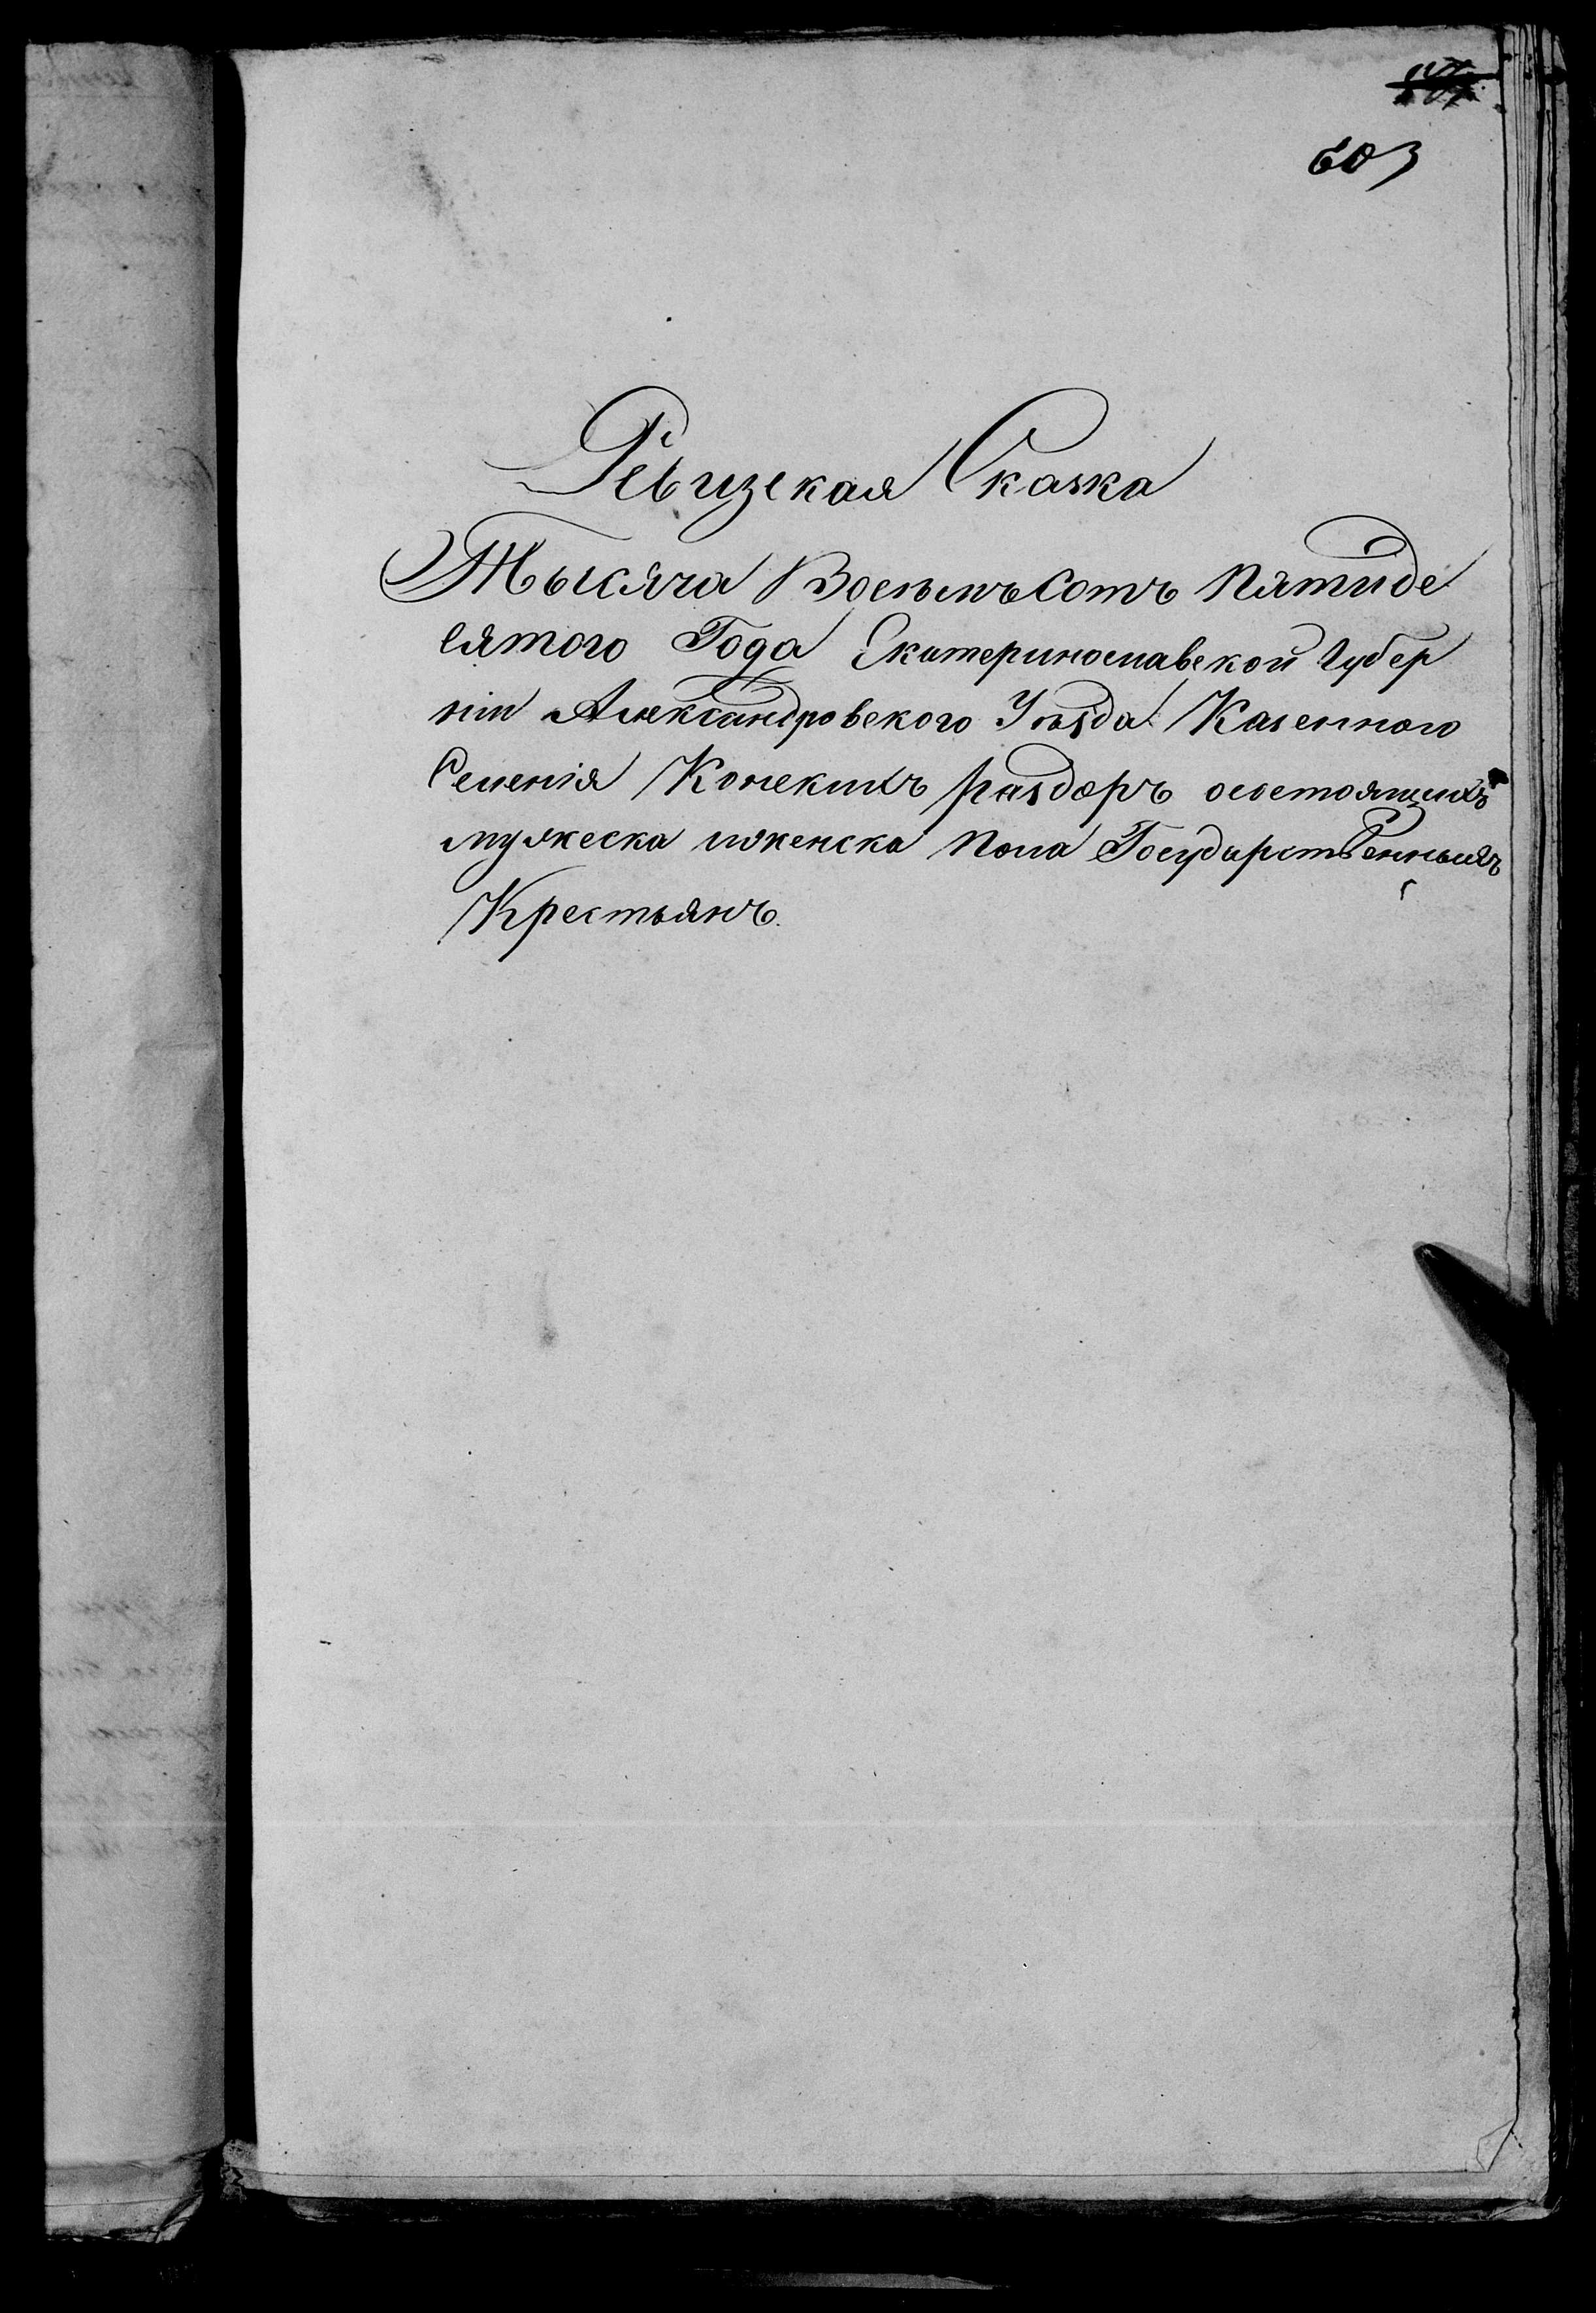 603
Ревизская Сказка
Тысяча Восемьсотъ Пятиде
сятого Года Екатеринославской Губер
ніи Александровского Уѣзда Казенного
Селенія Конскихъ Раздоръ осостоящихъ
мужеска иженска пола Государственныхъ
Крестьянъ.